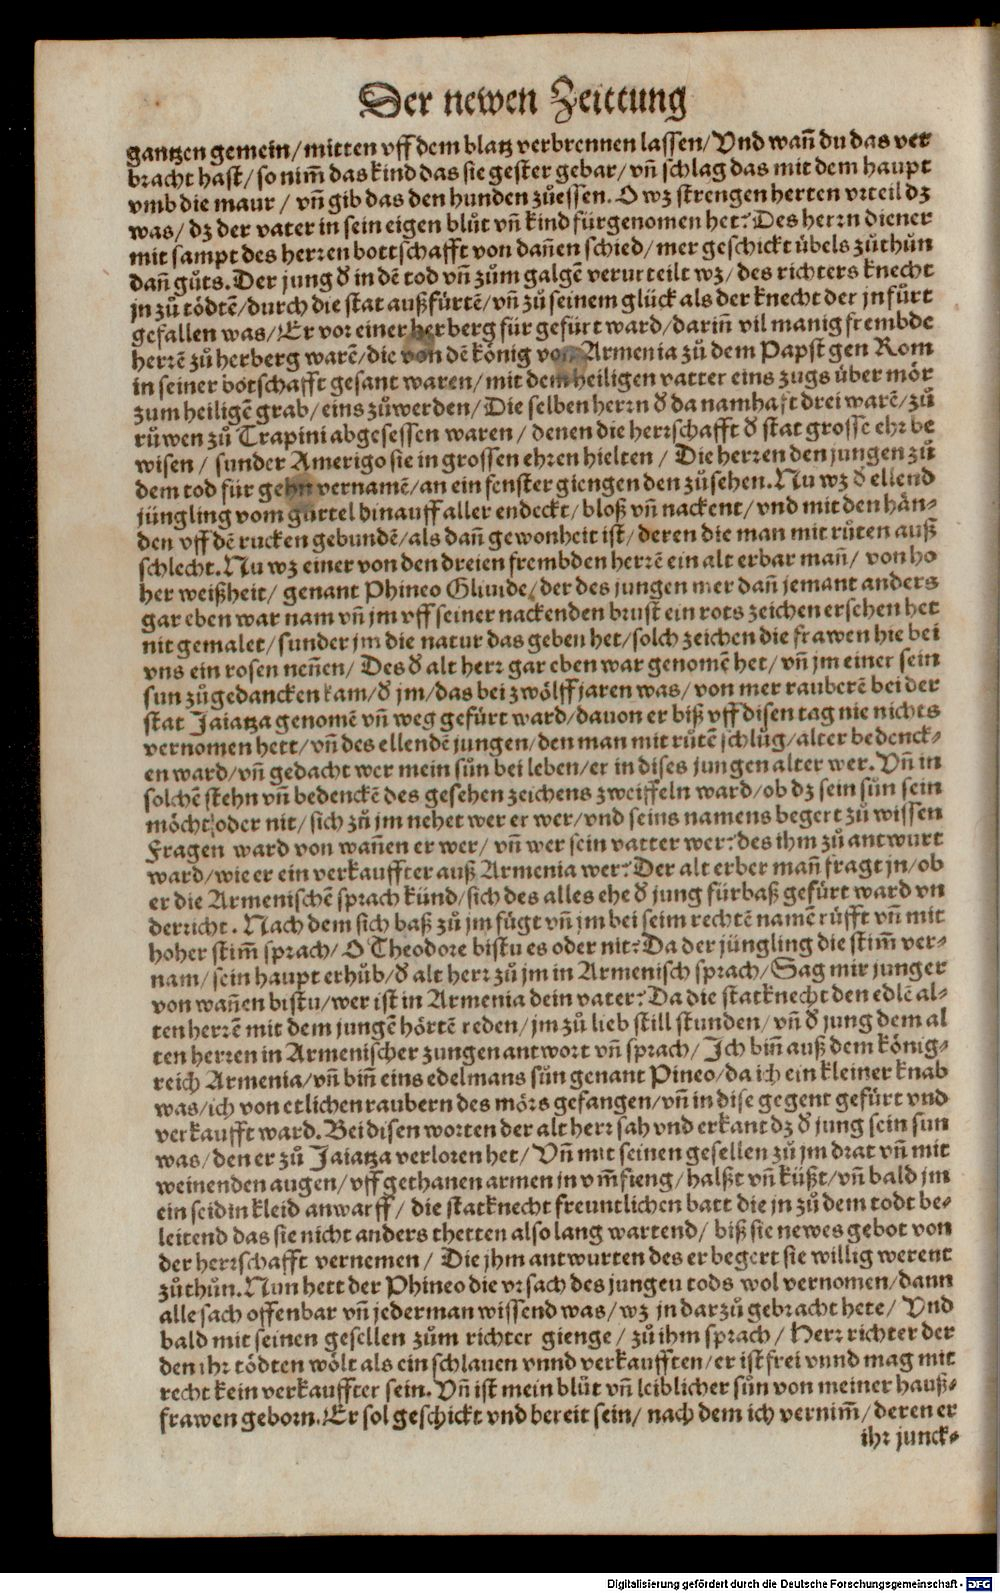 Der newen Zeittung
gantzen gemein/ mitten vff dem blatz verbrennen lassen/ Vnd wañ du das ver
bracht hast/ so nim̃ das kind das sie gester gebar/ vñ schlag das mit dem haupt
vmb die maur / vñ gib das den hunden zů essen. O wz strengen herten vrteil dz
was/ dz der vater in sein eigen blůt vñ kind fürgenomen het? Des herrn diener
mit sampt des herren bottschafft von dañen schied/ mer geschickt übels zůthůn
dañ gůts. Der jung d̕ in dē tod vñ zům galgē verurteilt wz/ des richters knecht
jn zů tödtē/ durch die stat außfürtē/ vñ zů seinem glück als der knecht der jn fürt
gefallen was/ Er vor einer herberg für gefürt ward/ darin̄ vil manig frembde
herrē zů herberg warē/ die von dē könig von Armenia zů dem Papst gen Rom
in seiner botschafft gesant waren/ mit dem heiligen vatter eins zugs über mör
zum heiligē grab/ eins zůwerden/ Die selben herrn d̕ da namhaft drei warē/ zů
rüwen zů Trapini abgesessen waren / denen die herrschafft d̕ stat grosse ehr be
wisen / sunder Amerigo sie in grossen ehren hielten / Die herren den jungen zů
dem tod für gehn vernamē/ an ein fenster giengen den zůsehen. Nu wz d̕ ellend
jüngling vom gürtel hinauff aller endeckt/ bloß vñ nackent/ vnd mit den hän⸗
den vff dē rucken gebundē/ als dañ gewonheit ist/ deren die man mit růten auß
schlecht. Nu wz einer von den dreien frembden herrē ein alt erbar mañ/ von ho
her weißheit/ genant Phineo Gliuide/ der des jungen mer dañ jemant anders
gar eben war nam vñ jm vff seiner nackenden brust ein rots zeichen ersehen het
nit gemalet/ sunder jm die natur das geben het/ solch zeichen die frawen hie bei
vns ein rosen neñen/ Des d̕ alt herr gar eben war genomē het/ vñ jm einer sein
sun zůgedancken kam/ d̕ jm/ das bei zwölff jaren was/ von mer rauberē bei der
stat Jaiatza genomē vñ weg gefürt ward/ dauon er biß vff disen tag nie nichts
vernomen hett/ vñ des ellendē jungen/ den man mit růtē schlůg/ alter bedenck⸗
en ward/ vñ gedacht wer mein sůn bei leben/ er in dises jungen alter wer. Vñ in
solchē stehn vñ bedenckē des gesehen zeichens zweiffeln ward/ ob dz sein sůn sein
möcht oder nit/ sich zů jm nehet wer er wer/ vnd seins namens begert zů wissen
Fragen ward von wañen er wer/ vñ wer sein vatter wer? des ihm zů antwurt
ward/ wie er ein verkauffter auß Armenia wer? Der alt erber mañ fragt jn/ ob
er die Armenischē sprach künd/ sich des alles ehe d̕ jung fürbaß gefürt ward vn
derricht. Nach dem sich baß zů jm fügt vñ jm bei seim rechtē namē růfft vñ mit
hoher stim̃ sprach/ O Theodore bistu es oder nit? Da der jüngling die stim̃ ver⸗
nam/ sein haupt erhůb/ d̕ alt herr zů jm in Armenisch sprach/ Sag mir junger
von wañen bistu/ wer ist in Armenia dein vater? Da die statknecht den edlē al⸗
ten herrē mit dem jungē hörtē reden/ jm zů lieb still stunden/ vñ d̕ jung dem al
ten herren in Armenischer zungen antwort vñ sprach/ Ich biñ auß dem könig⸗
reich Armenia/ vñ biñ eins edelmans sůn genant Pineo/ da ich ein kleiner knab
was/ ich von etlichen raubern des mörs gefangen/ vñ in dise gegent gefürt vnd
verkaufft ward. Bei disen worten der alt herr sah vnd erkant dz d̕ jung sein sun
was/ den er zů Jaiatza verloren het/ Vñ mit seinen gesellen zů jm drat vñ mit
weinenden augen/ vff gethanen armen jn vm̃fieng/ halßt vñ küßt/ vñ bald jm
ein seidin kleid anwarff / die statknecht freuntlichen batt die jn zů dem todt be⸗
leitend das sie nicht anders thetten also lang wartend/ biß sie newes gebot von
der herrschafft vernemen / Die jhm antwurten des er begert sie willig werent
zůthůn. Nun hett der Phineo die vrsach des jungen tods wol vernomen/ dann
alle sach offenbar vñ jederman wissend was/ wz jn darzů gebracht hete/ Vnd
bald mit seinen gesellen zům richter gienge / zů ihm sprach / Herr richter der
den ihr tödten wölt als ein schlauen vnnd verkaufften/ er ist frei vnnd mag mit
recht kein verkauffter sein. Vñ ist mein blůt vñ leiblicher sůn von meiner hauß⸗
frawen geborn. Er sol geschickt vnd bereit sein/ nach dem ich vernim̃/ deren er
ihr junck⸗
Digitalisierung gefördert durch die Deutsche Forschungsgemeinschaft - DFG